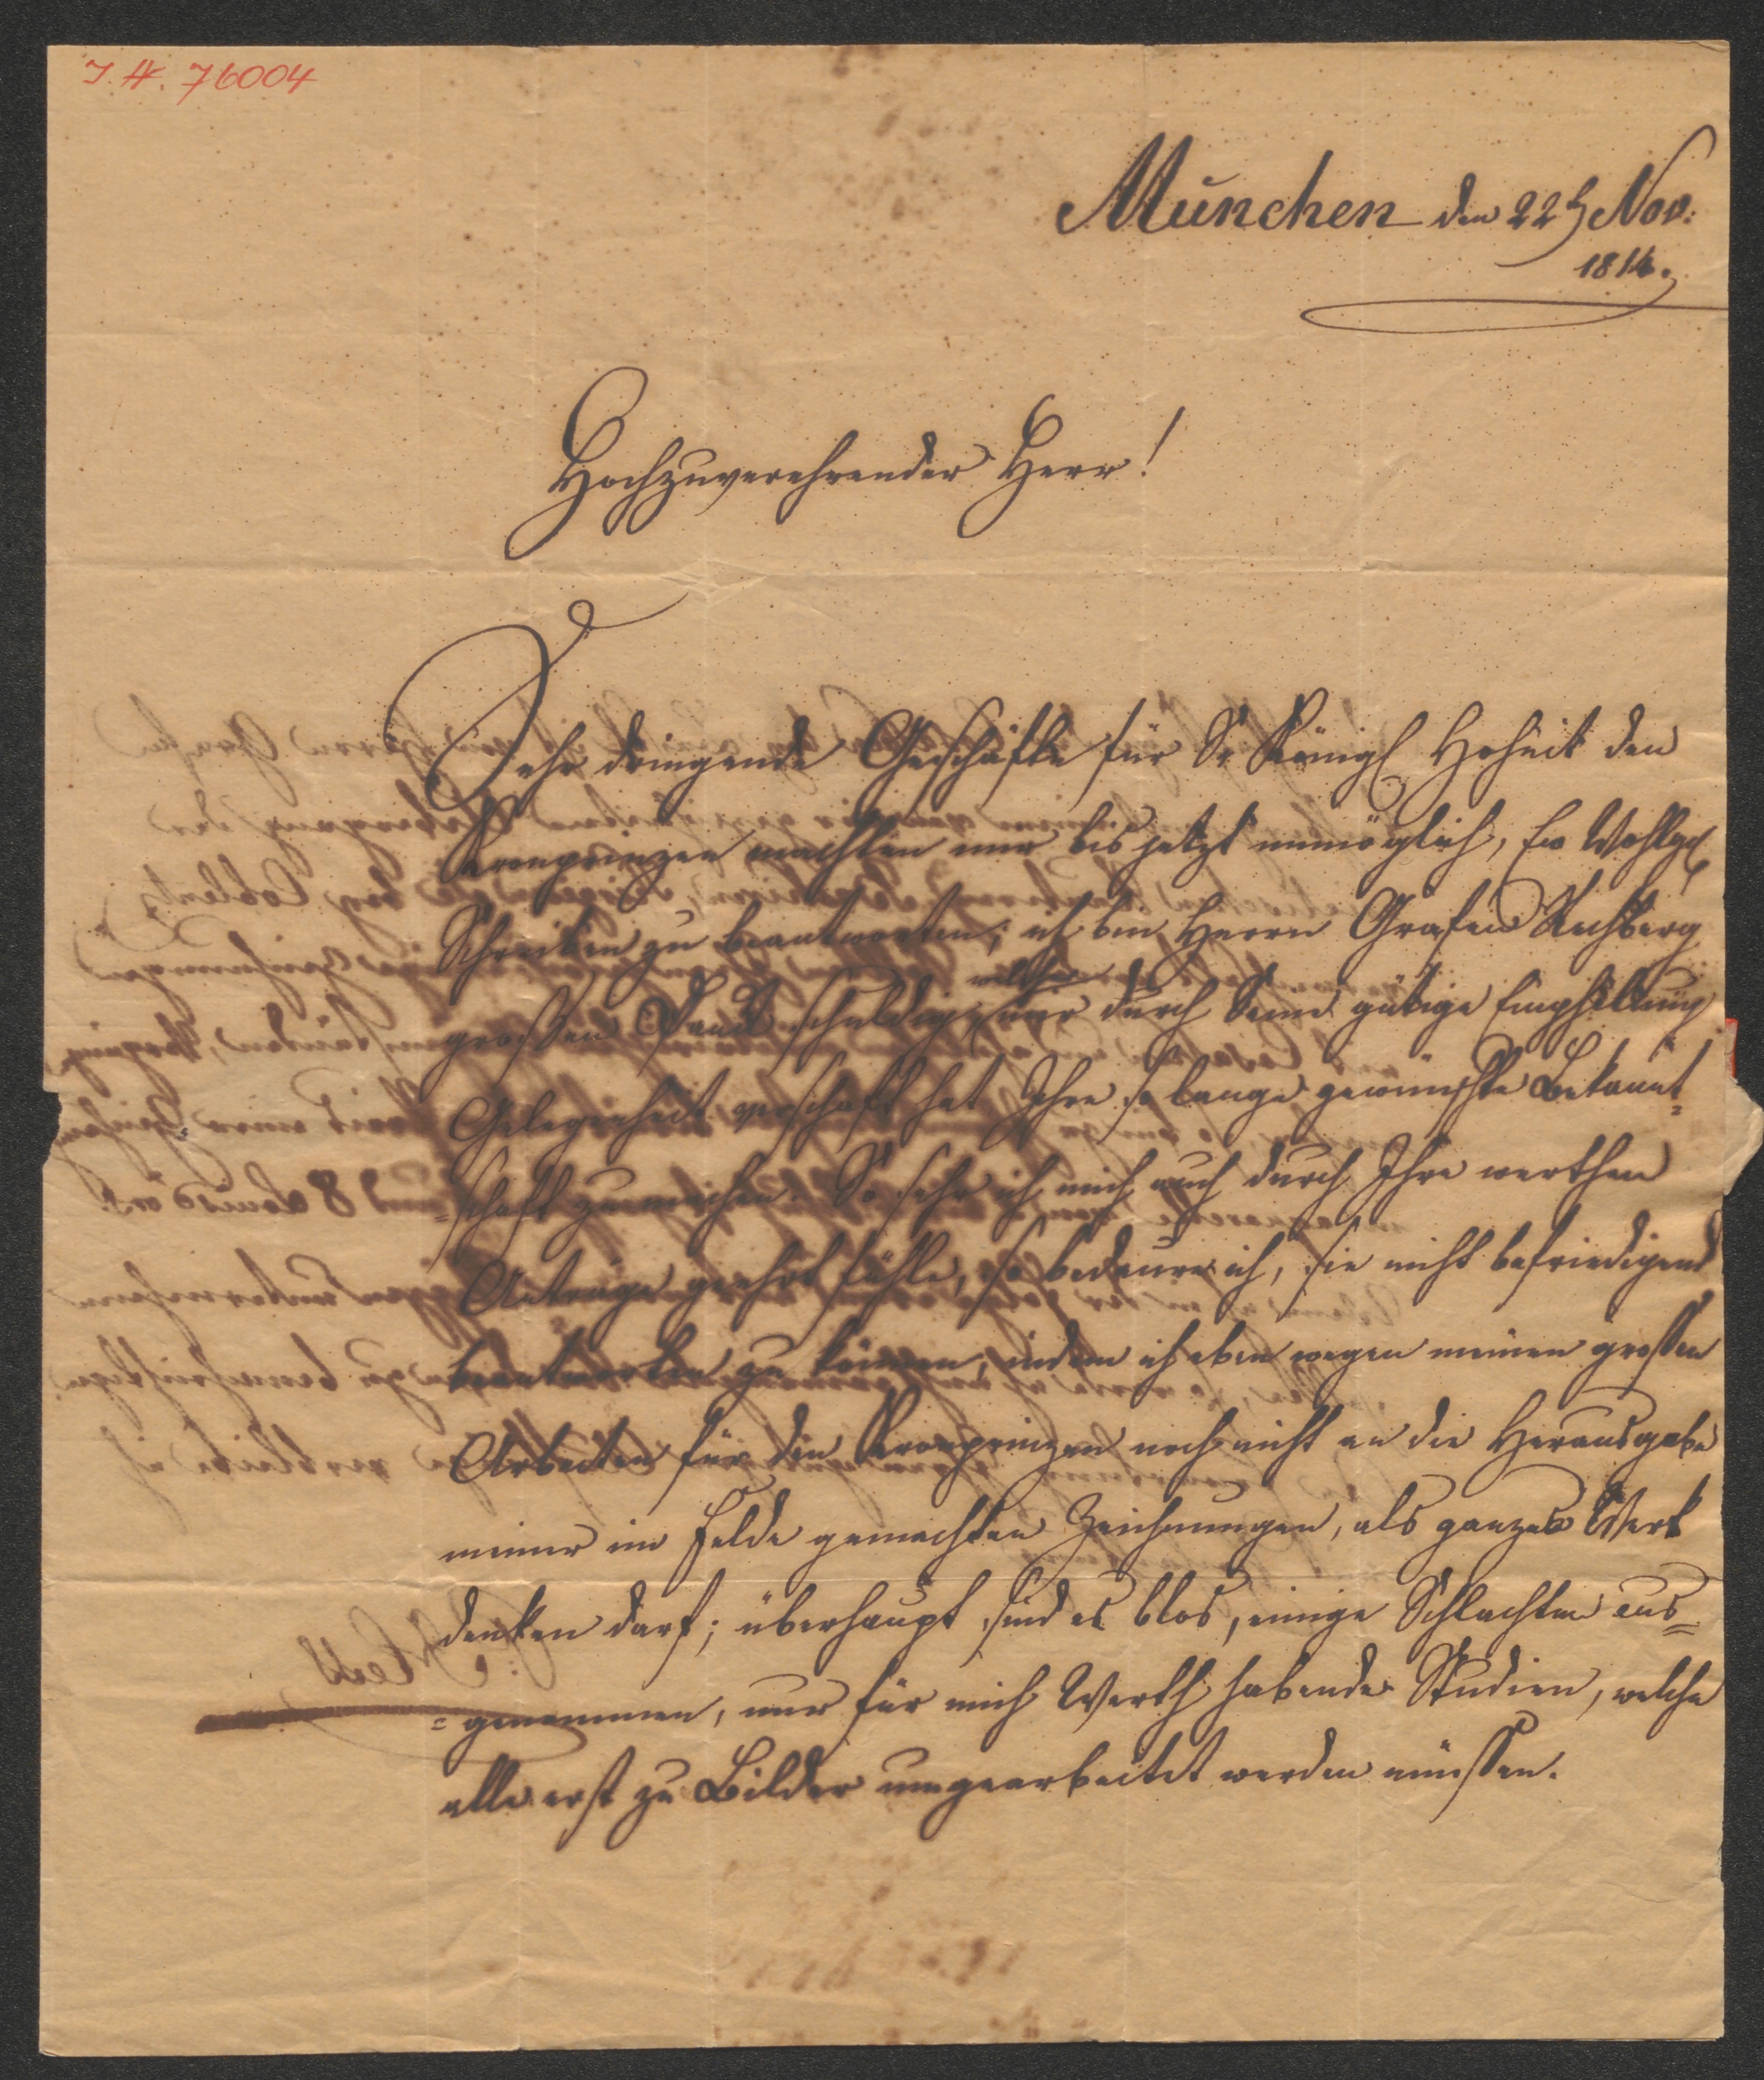 J. N. 76004
München den 22t Nov:
1814.
Hochzuverehrender Herr!
Sehr dringende Geschäfte für Sr Königl Hoheit den
Kronprinzen machten mir bis jetzt unmöglich, Ew Wohlg
Schreiben zu beantworten; ich bin Herrn Grafen Rechberg
welcher
großen Dank schuldig, mir durch Seine gütige Empfehlung
Gelegenheit verschaft hat Ihre so lange gewünschte Bekannt=
=schaft zu machen. So sehr ich mich auch durch Ihre werthen
Anträge geehrt fühle, so bedaure ich, sie nicht befriedigend
beantworten zu können, indem ich eben wegen meinen großen
Arbeiten für den Kronprinzen noch nicht an die Herausgabe
meiner im Felde gemachten Zeichnungen, als ganzes Werk
denken darf; überhaupt sind es blos, einige Schlachten aus=
=genommen, nur für mich Werth habende Studien, welche
alle erst zu Bilder umgearbeitet werden müssen.